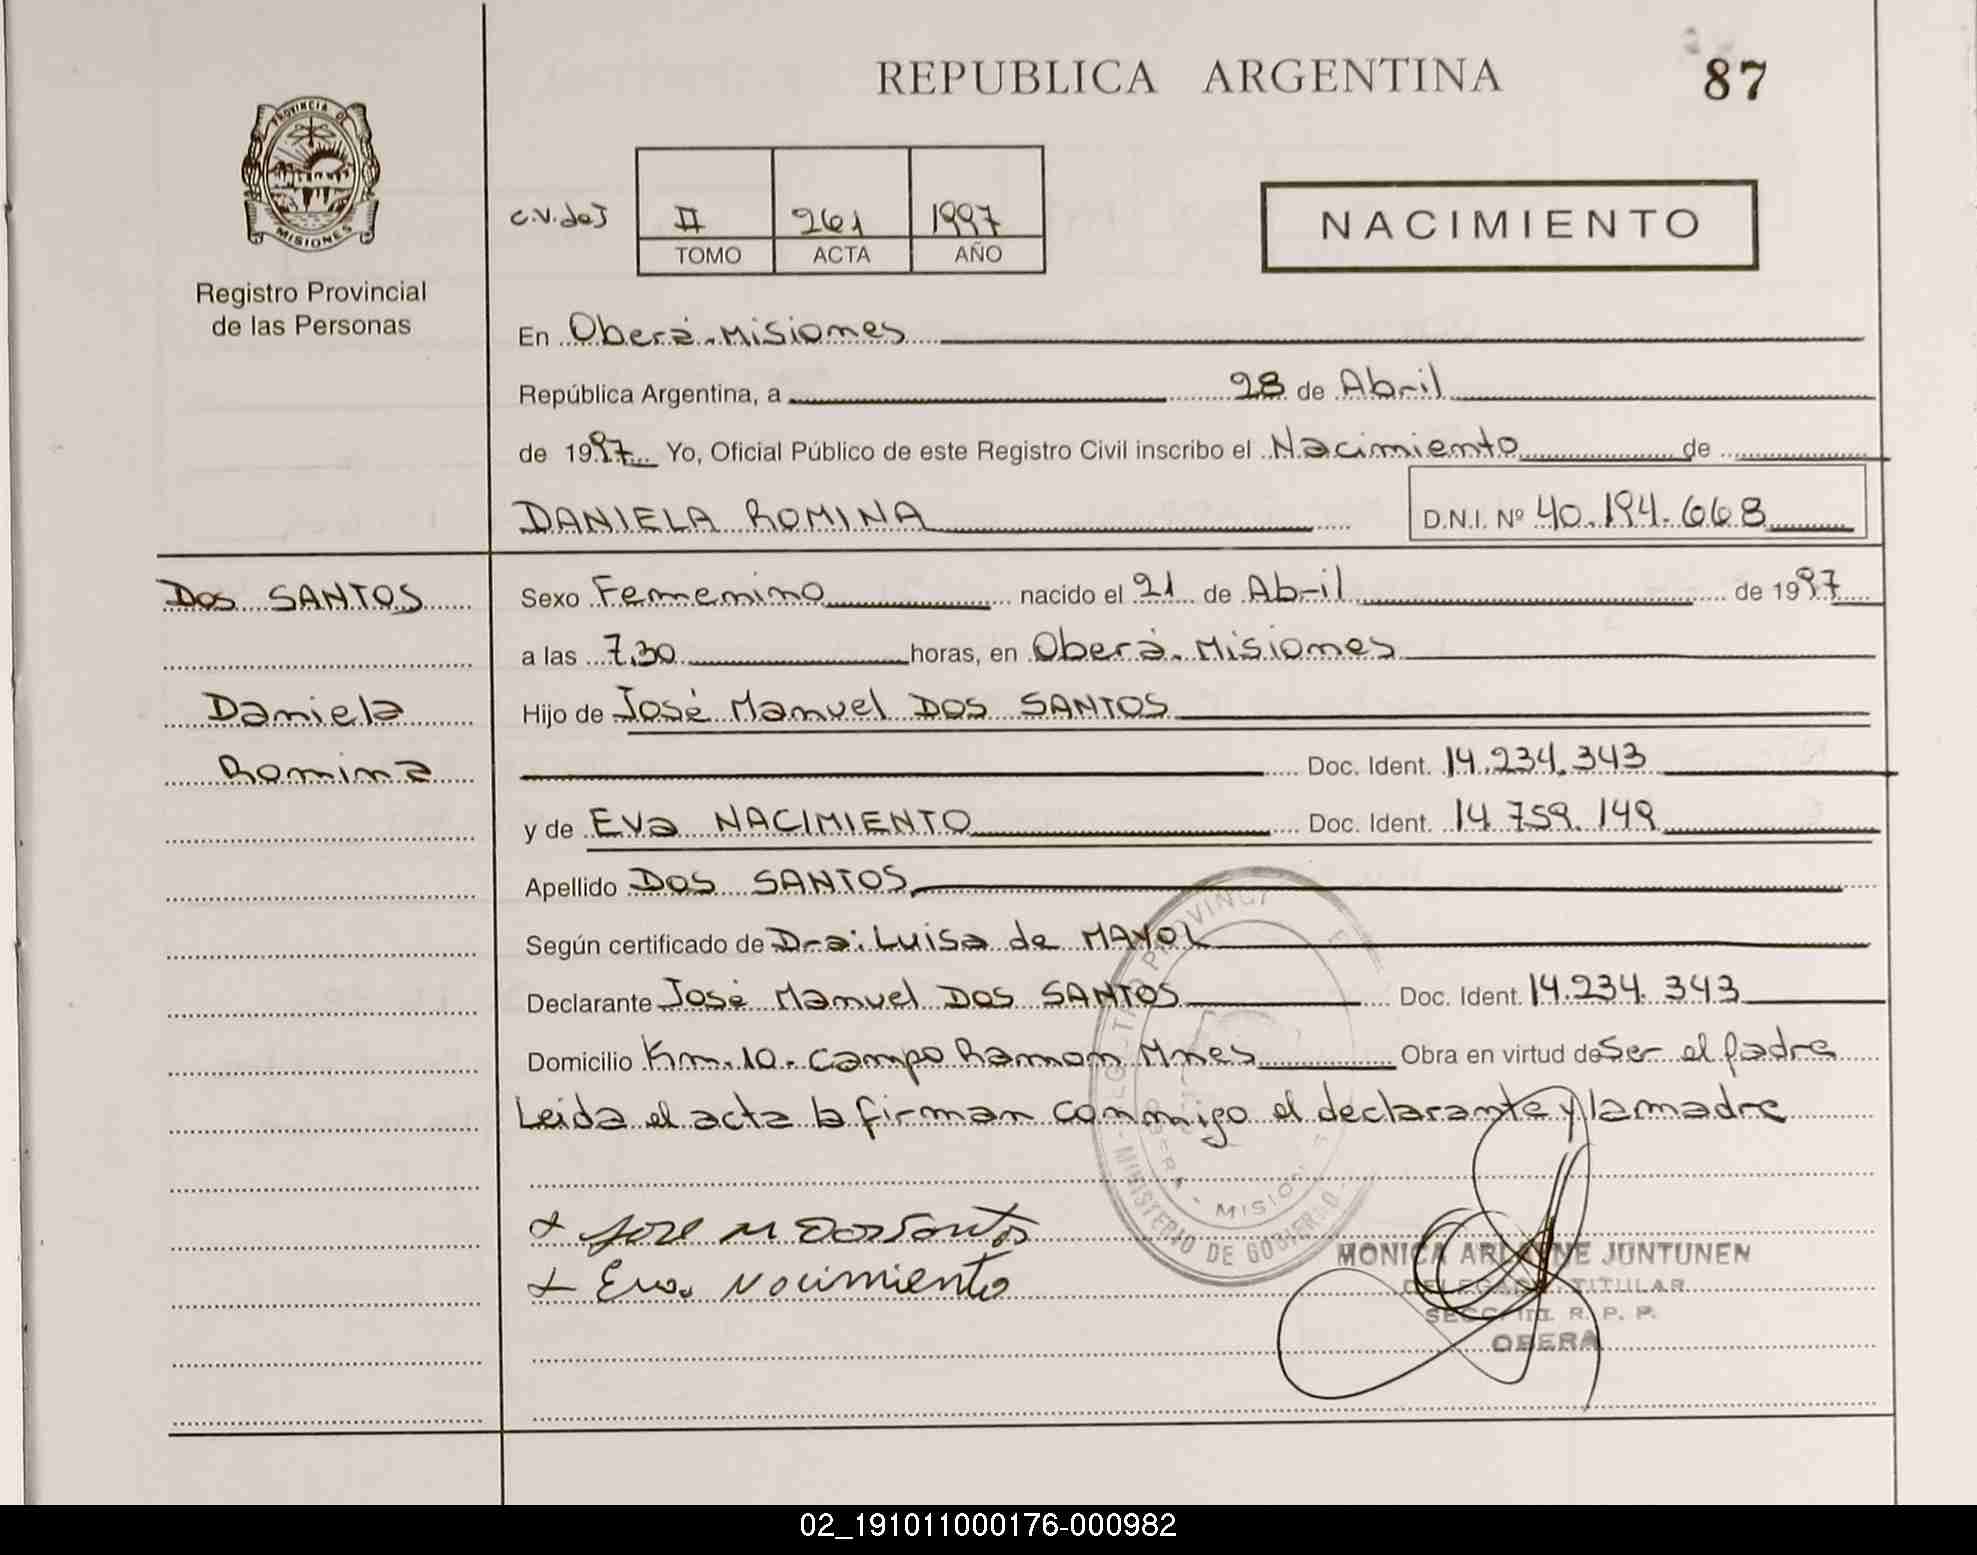 REPUBLICA ARGENTINA
87
PROVINCIA DE
MISIONES
Registro Provincial
de las Personas
C.V.deJ
II 261 1997
TOMO ACTA AÑO
NACIMIENTO
En Oberá-Misiones
República Argentina, a 28 de Abril
de 1997 Yo, Oficial Público de este Registro Civil inscribo el Nacimiento de
DANIELA ROMINA
D.N.I. Nº 40.194.668
DOS SANTOS
Daniela
Romina
Sexo Femenino nacido el 21 de Abril de 1997
a las 7,30 horas, en Oberá. Misiones
Hijo de José Manuel DOS SANTOS
Doc. Ident. 14.234.343
y de Eva NACIMIENTO Doc. Ident. 14.759.149
Apellido DOS SANTOS
Según certificado de Dra: Luisa de MAYOL
Declarante José Manuel DOS SANTOS Doc. Ident. 14.234.343
Domicilio Km.10-Campo Ramon Mnes Obra en virtud de Ser el padre
Leida el acta la firman conmigo el declarante y la madre
Jose M Dos Santos
Eva Nacimiento
MINISTERIO DE GOBIERNO
MONICA ARIANNE JUNTUNEN
DELEGADA TITULAR
SECC. R. P. P.
OBERA
02_191011000176-000982